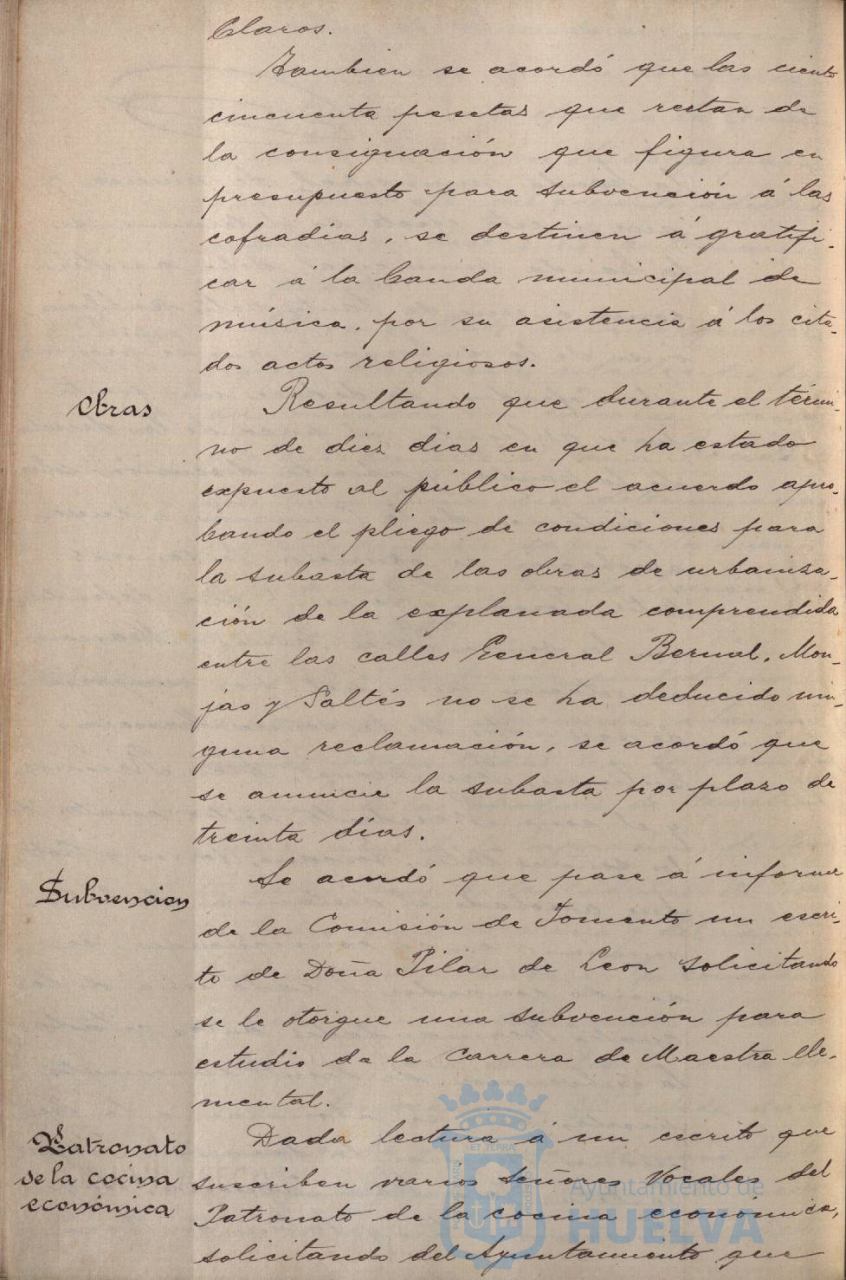 Claros.
Tambien se acordó que las ciento
cincuenta pesetas que restan de
la consignación que figura en
presupuesto para subvención á las
cofradias, se destinen á gratifi-
car á la banda municipal de
música, por su asistencia á los cita-
dos actos religiosos.
Obras
Resultando que durante el térmi-
no de diez dias en que ha estado
expuesto al público el acuerdo apro-
bando el pliego de condiciones para
la subasta de las obras de urbaniza-
ción de la explanada comprendida
entre las calles General Bernal, Mon-
jas y Saltés no se ha deducido nin-
guna reclamación, se acordó que
se anuncie la subasta por plazo de
treinta días.
Subvencion
Se acordó que pase á informe
de la Comisión de Fomento un escri-
to de Doña Pilar de Leon solicitando
se le otorgue una subvención para
estudio de la Carrera de Maestra ele-
mental.
Patronato
de la cocina
económica
Dada lectura á un escrito que
suscriben varios Señores Vocales del
Patronato de la cocina economica,
solicitando del Ayuntamiento que
Ayuntamiento de
HUELVA